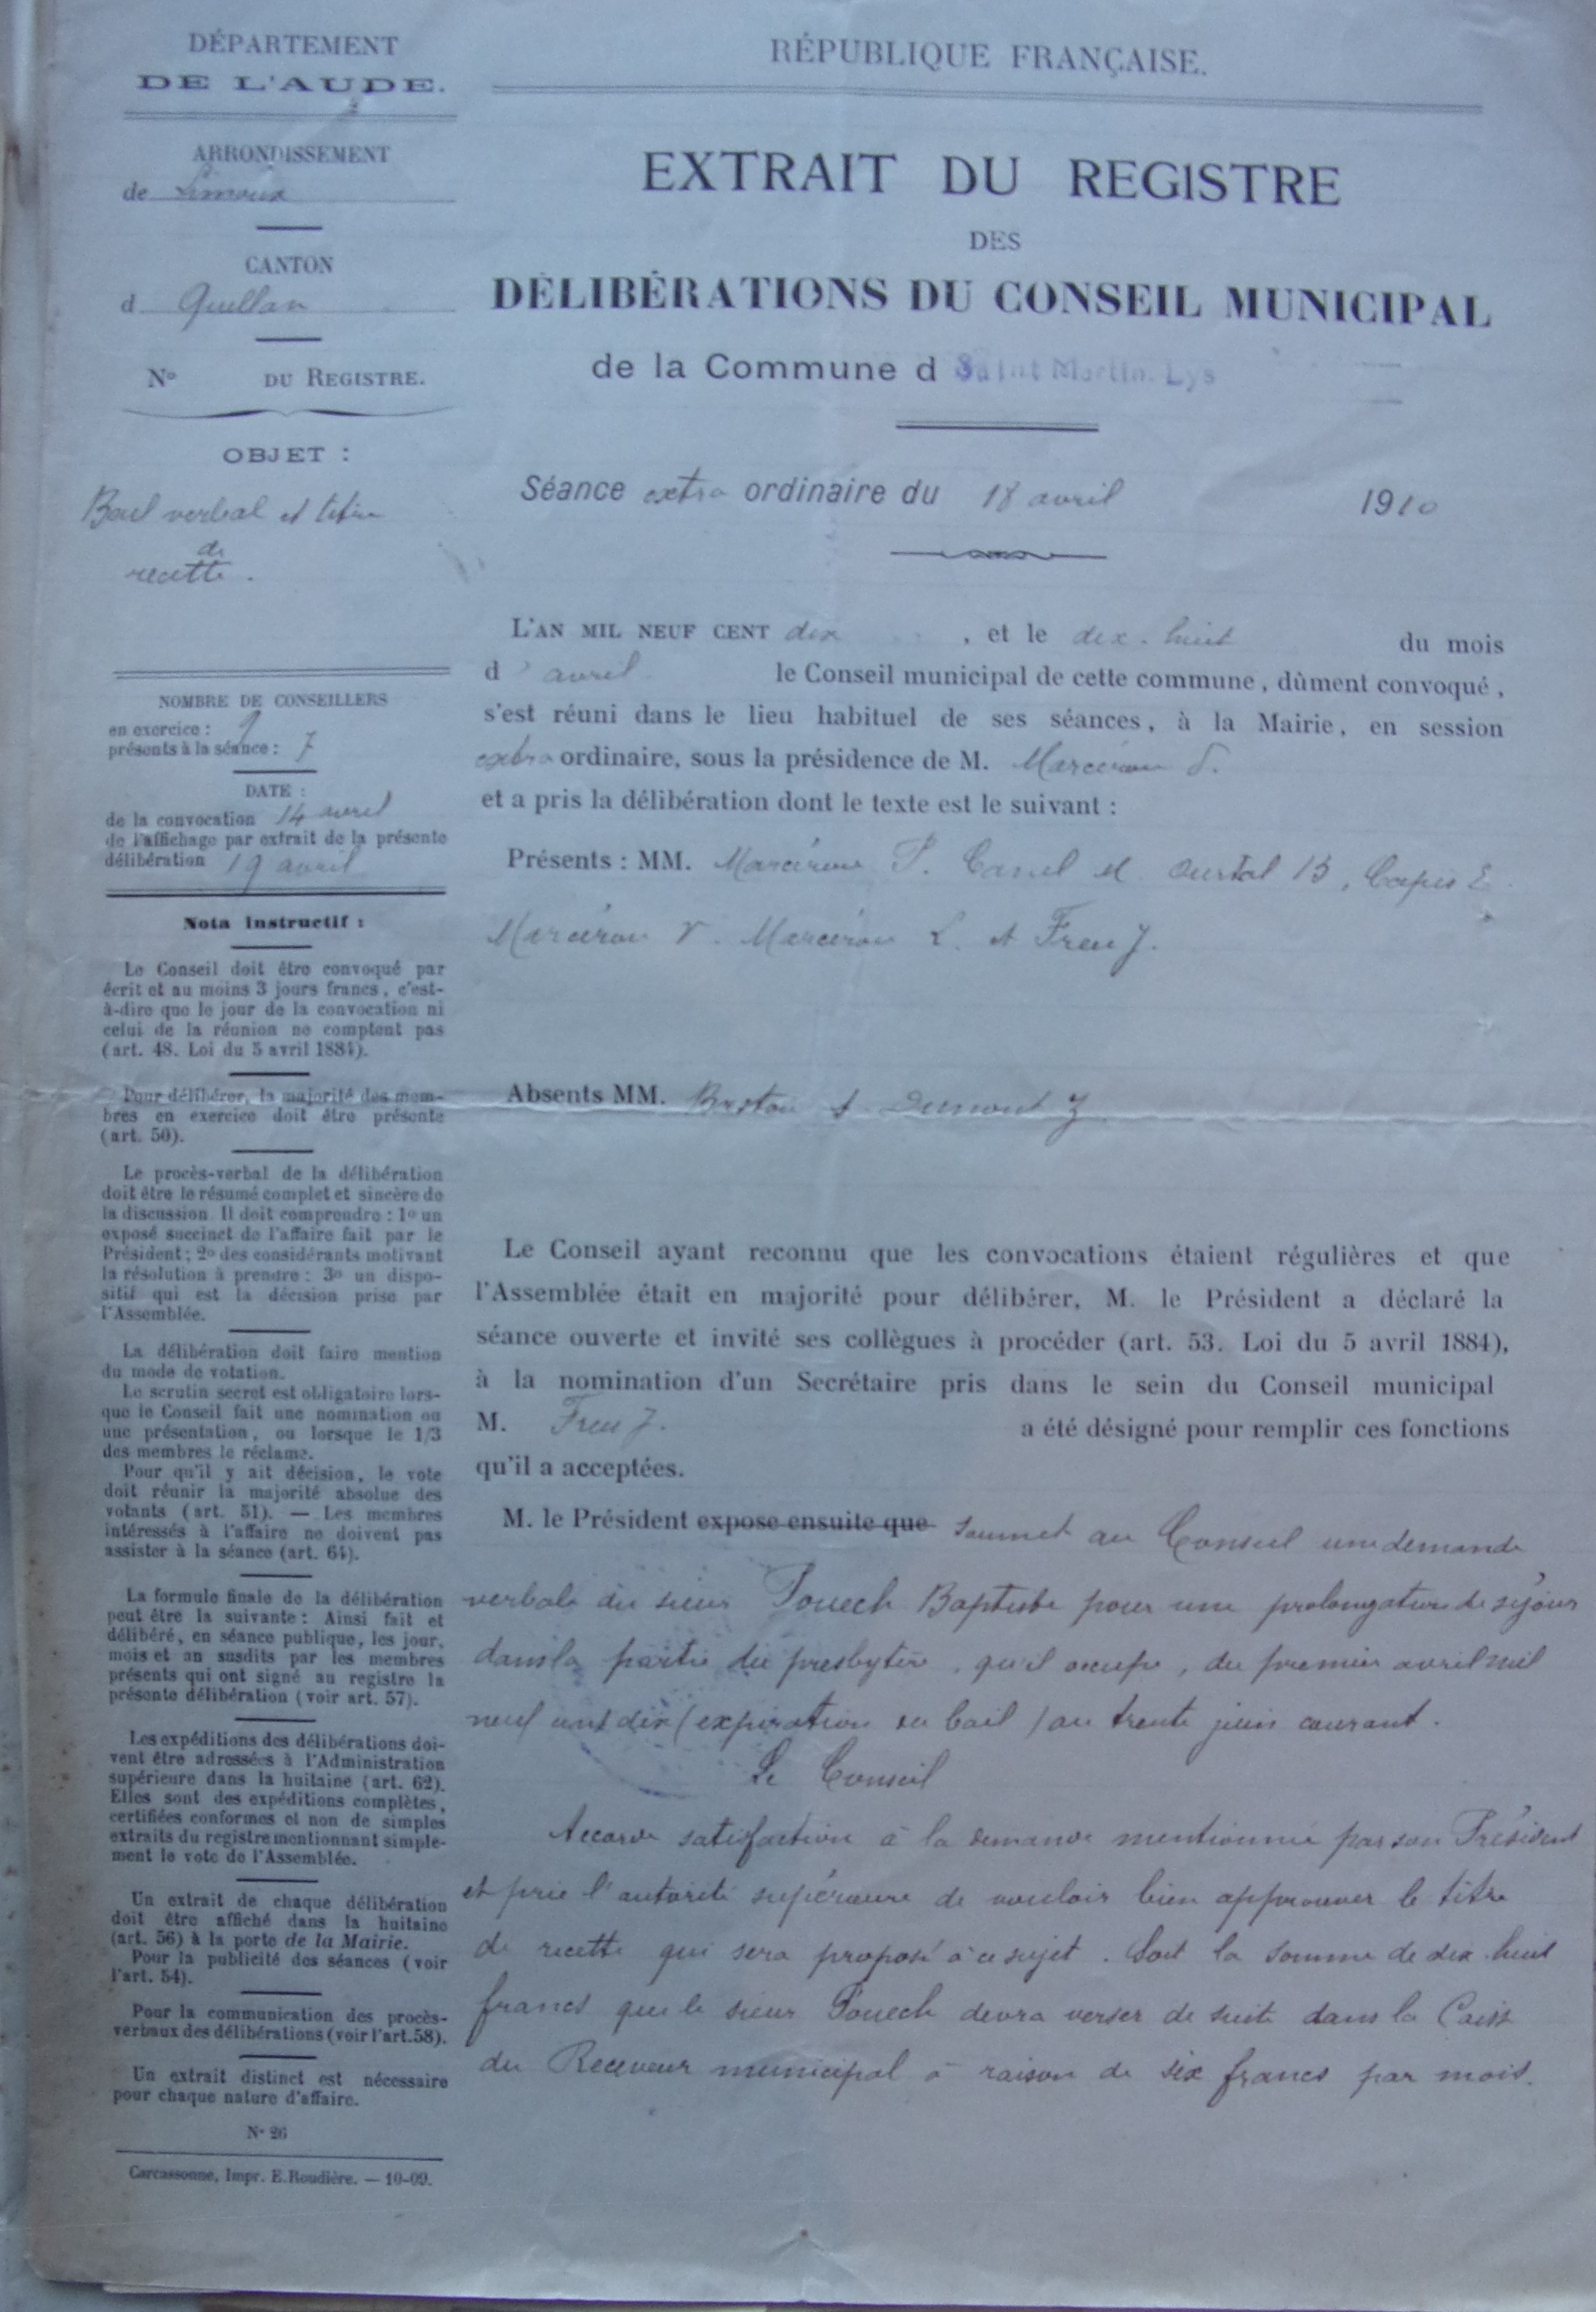 DÉPARTEMENT
DE L'AUDE.
ARRONDISSEMENT
de Limoux
CANTON
d Quillan
N° DU REGISTRE.
OBJET :
Bail verbal et titre
de
recette.
NOMBRE DE CONSEILLERS
en exercice : 9
présents à la séance : 7
DATE :
de la convocation 14 avril
de l'affichage par extrait de la présente
délibération 19 avril
Nota instructif :
Le Conseil doit être convoqué par
écrit et au moins 3 jours francs, c'est-
à-dire que le jour de la convocation ni
celui de la réunion ne comptent pas
(art. 48. Loi du 5 avril 1884).
Pour délibérer, la majorité des mem-
bres en exercice doit être présente
(art. 50).
Le procès-verbal de la délibération
doit être le résumé complet et sincère de
la discussion. Il doit comprendre : 1° un
exposé succinct de l'affaire fait par le
Président ; 2° des considérants motivant
la résolution à prendre : 3° un dispo-
sitif qui est la décision prise par
l'Assemblée.
La délibération doit faire mention
du mode de votation.
Le scrutin secret est obligatoire lors-
que le Conseil fait une nomination ou
une présentation, ou lorsque le 1/3
des membres le réclame.
Pour qu'il y ait décision, le vote
doit réunir la majorité absolue des
votants (art. 51). — Les membres
intéressés à l'affaire ne doivent pas
assister à la séance (art. 64).
La formule finale de la délibération
peut être la suivante : Ainsi fait et
délibéré, en séance publique, les jour,
mois et an susdits par les membres
présents qui ont signé au registre la
présente délibération (voir art. 57).
Les expéditions des délibérations doi-
vent être adressées à l'Administration
supérieure dans la huitaine (art. 62).
Elles sont des expéditions complètes,
certifiées conformes et non de simples
extraits du registre mentionnant simple-
ment le vote de l'Assemblée.
Un extrait de chaque délibération
doit être affiché dans la huitaine
(art. 56) à la porte de la Mairie.
Pour la publicité des séances (voir
l'art. 54).
Pour la communication des procès-
verbaux des délibérations (voir l'art.58).
Un extrait distinct est nécessaire
pour chaque nature d'affaire.
N° 26
Carcassonne, Impr. E.Roudière. — 10-09.
RÉPUBLIQUE FRANÇAISE.
EXTRAIT DU REGISTRE
DES
DÉLIBÉRATIONS DU CONSEIL MUNICIPAL
de la Commune d Saint Martin. Lys
Séance extra ordinaire du 18 avril 1910
L'AN MIL NEUF CENT dix, et le dix-huit du mois
d'avril le Conseil municipal de cette commune, dûment convoqué,
s'est réuni dans le lieu habituel de ses séances, à la Mairie, en session
extra ordinaire, sous la présidence de M. Marcérou P.
et a pris la délibération dont le texte est le suivant :
Présents : MM. Marcérou P. Canel et Ourtal B,
Marcérou V. Marcérou L. et Freu J.
Absents MM. Dumont J
Le Conseil ayant reconnu que les convocations étaient régulières et que
l'Assemblée était en majorité pour délibérer, M. le Président a déclaré la
séance ouverte et invité ses collègues à procéder (art. 53. Loi du 5 avril 1884),
à la nomination d'un Secrétaire pris dans le sein du Conseil municipal
M. Freu J. a été désigné pour remplir ces fonctions
qu'il a acceptées.
M. le Président expose ensuite que soumet au Conseil une demande
verbale du sieur Pouech Baptiste pour une prolongation de séjour
dans la partie du presbytère, qu'il occupe, du premier avril mil
neuf cent dix (expiration du bail) au trente juin courant.
Le Conseil
Accorde satisfaction à la demande mentionnée par son Président
et prie l'autorité supérieure de vouloir bien approuver le titre
de recette qui sera proposé à ce sujet. Soit la somme de dix-huit
francs que le sieur Pouech devra verser de suite dans la Caisse
du Receveur municipal à raison de six francs par mois.